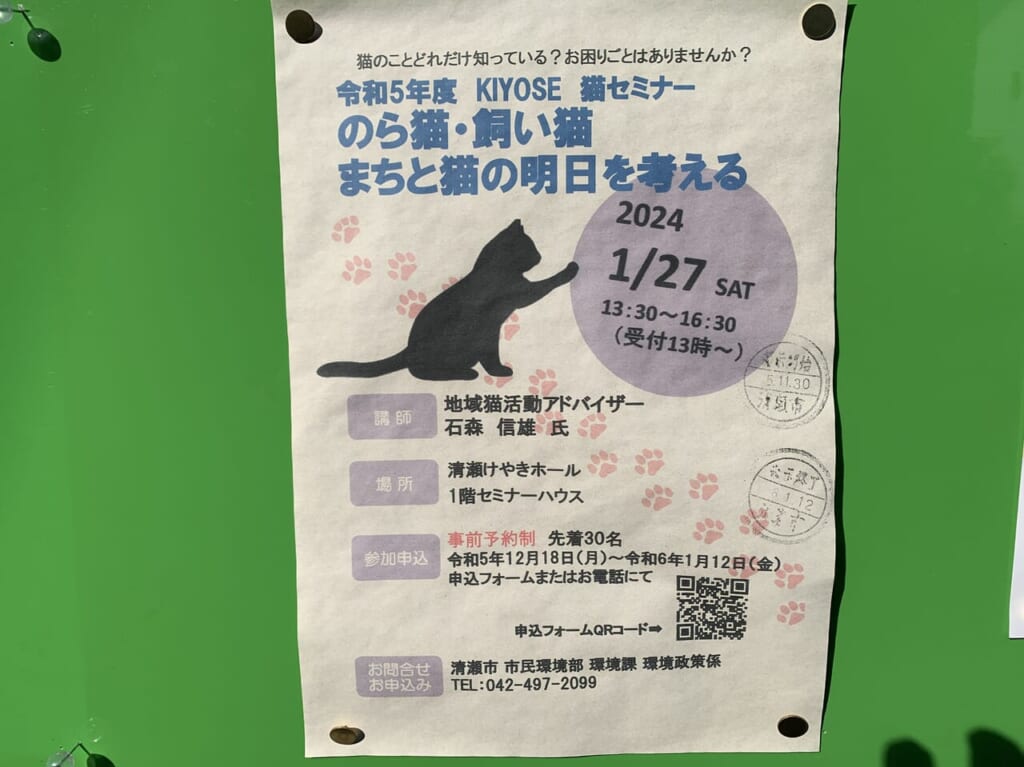 猫のことどれだけ知っている？お困りごとはありませんか？
令和5年度 KIYOSE 猫セミナー
のら猫・飼い猫
まちと猫の明日を考える
2024
1/27 SAT
13:30～16:30
（受付13時～）
講師
地域猫活動アドバイザー
石森 信雄 氏
場所
清瀬けやきホール
1階セミナーハウス
参加申込
事前予約制 先着30名
令和5年12月18日（月）～令和6年1月12日（金）
申込フォームまたはお電話にて
申込フォームQRコード➡
お問合せ
お申込み
清瀬市 市民環境部 環境課 環境政策係
TEL:042-497-2099
5.11.30
清瀬市
公示終了
6.1.12